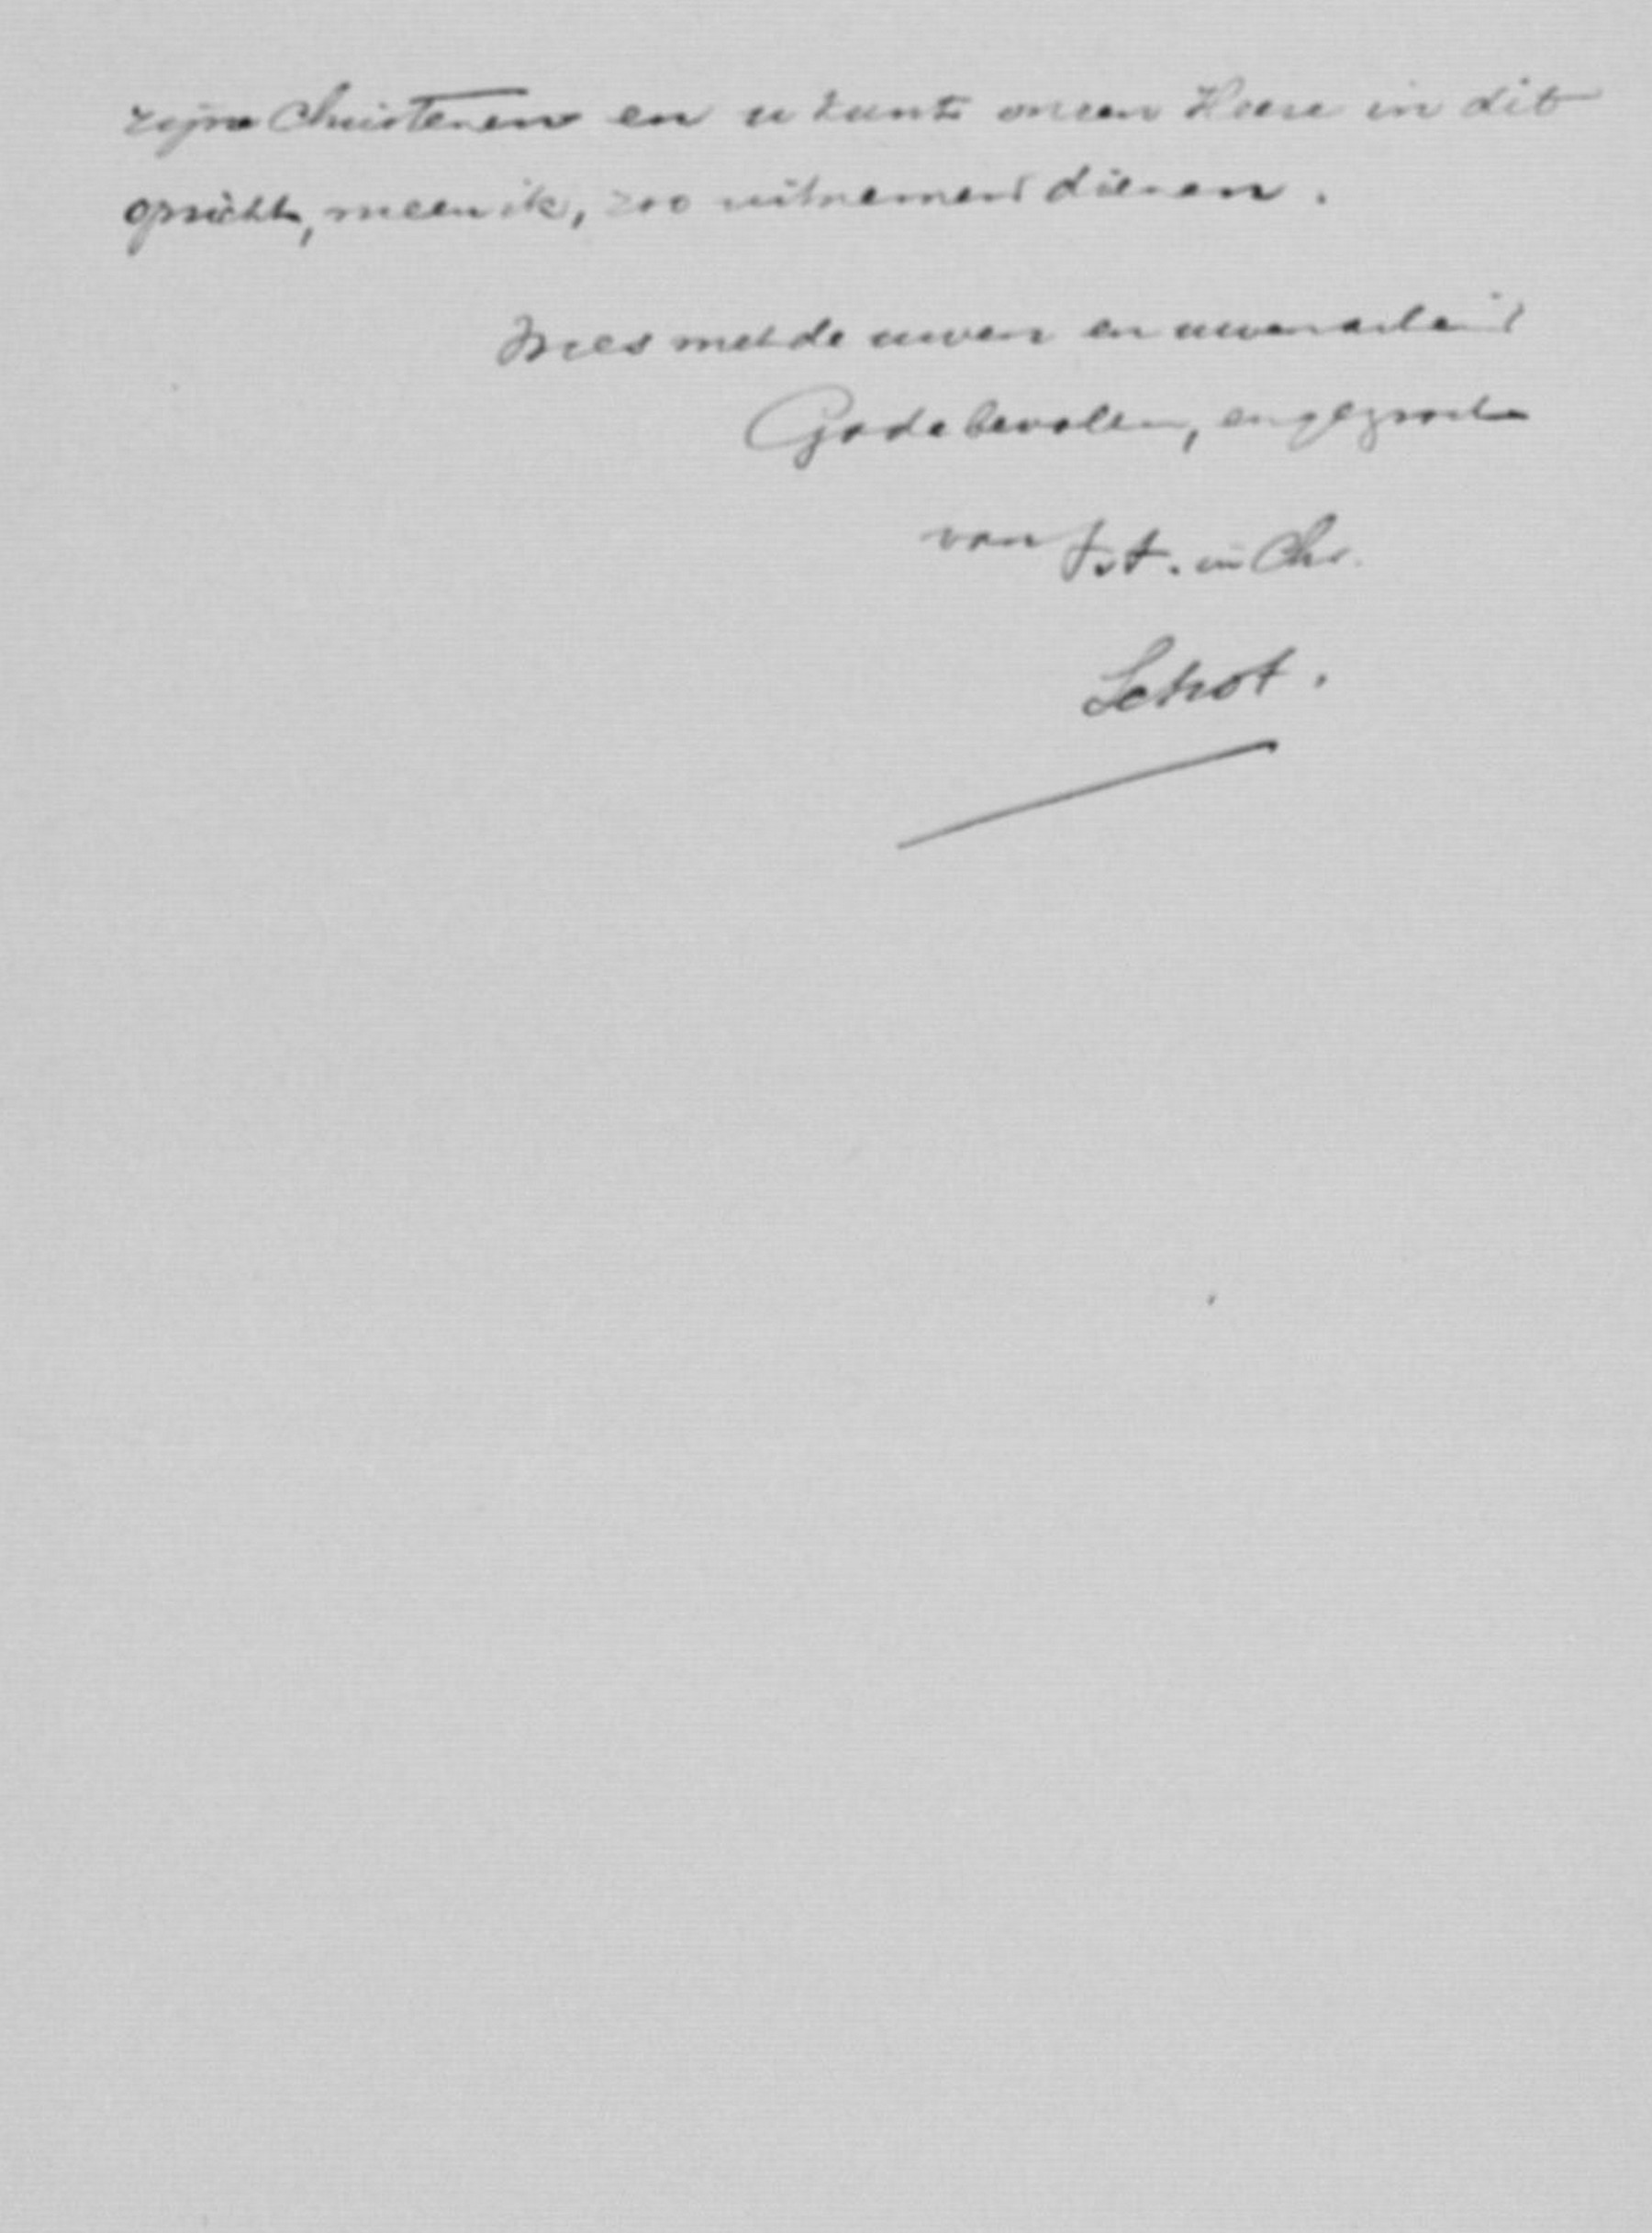 zijne Christenen en u kunt onzen Heere in dit
opzicht, meen ik, zoo uitnemend dienen.
Wees met de uwen en uwen arbeid
Gode bevolen, en gegroet
van t.t. in Chr.
Schot.